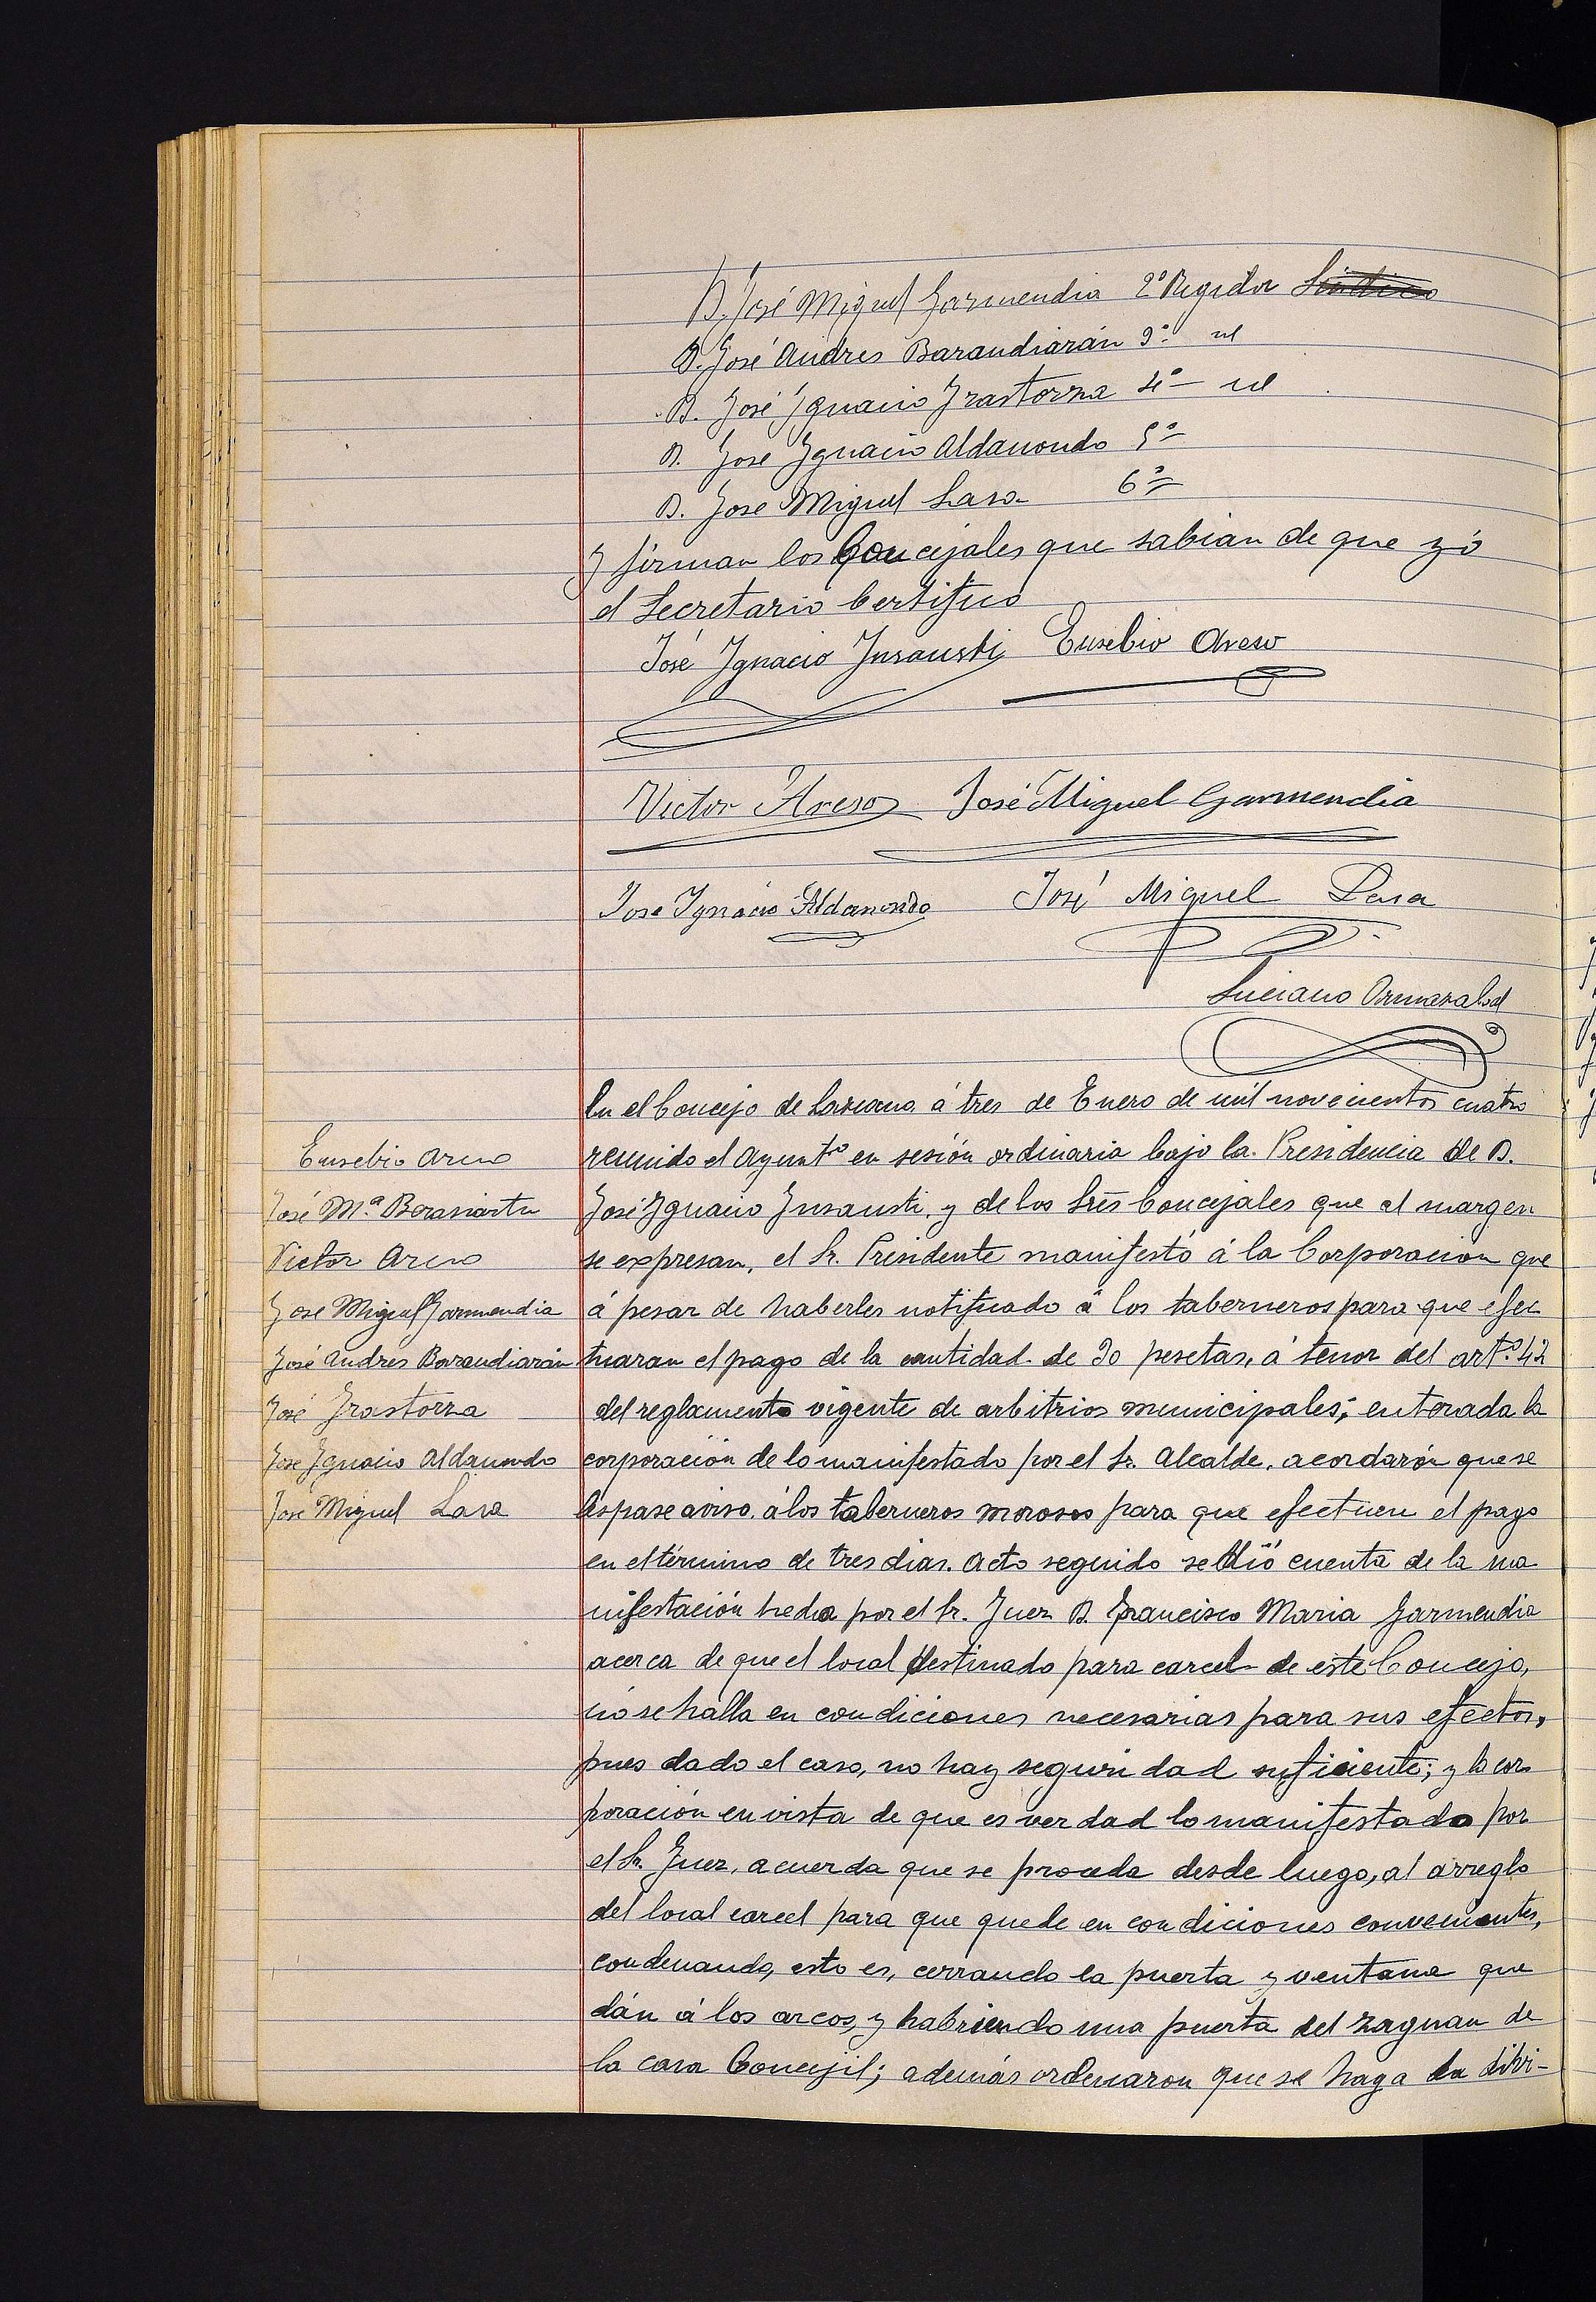 D. José Miguel Garmendia 2º Regidor Síndico
D. José Andres Barandiarán 3º id
D. José Ygnacio Yrastorza 4º id
D. José Ygnacio Aldanondo 5º
D. José Miguel Lasa 6º
Y firman los Concejales que sabian de que yó
el Secretario Certifico
José Ygnacio Ynsausti Eusebio Areso
Victor Areso José Miguel Garmendia
Jose Ygnacio Aldanondo José Miguel Lasa
Luciano Ormazabal
Eusebio Areso
José Mª Berasiartu
Victor Areso
Jose Miguel Garmendia
José Andres Barandiarán
José Yrastorza
Jose Ygnacio Aldanondo
Jose Miguel Lasa
En el Concejo de Lazcano á tres de Enero de mil novecientos cuatro
reunido el Ayuntº en sesión ordinaria bajo la Presidencia de D.
José Ygnacio Ynsausti, y de los Srēs Concejales que al margen
se expresan, el Sr. Presidente manifestó á la Corporacion que
á pesar de haberles notificado á los taberneros para que efec
tuaran el pago de la cantidad de 30 pesetas, á tenor del artº 42
del reglamento vigente de arbitrios municipales; enterada la
corporación de lo manifestado por el Sr. Alcalde, acordarón que se
les pase aviso á los taberneros morosos para que efectuen el pago
en el término de tres dias. Acto seguido se dió cuenta de la ma
nifestación hecha por el Sr. Juez D. Francisco Maria Garmendia
acerca de que el local destinado para carcel de este Concejo,
nó se halla en condiciones necesarias para sus efectos,
pues dado el caso, no hay seguridad suficiente; y la cor
poración en vista de que es verdad lo manifestado por
el Sr. Juez, acuerda que se proceda desde luego, al arreglo
del local carcel para que quede en condiciones convenientes,
condenando, esto es, cerrando la puerta y ventana que
dán á los arcos, y habriendo una puerta del zaguan de
la casa Concejil; además ordenaron que se haga la divi-